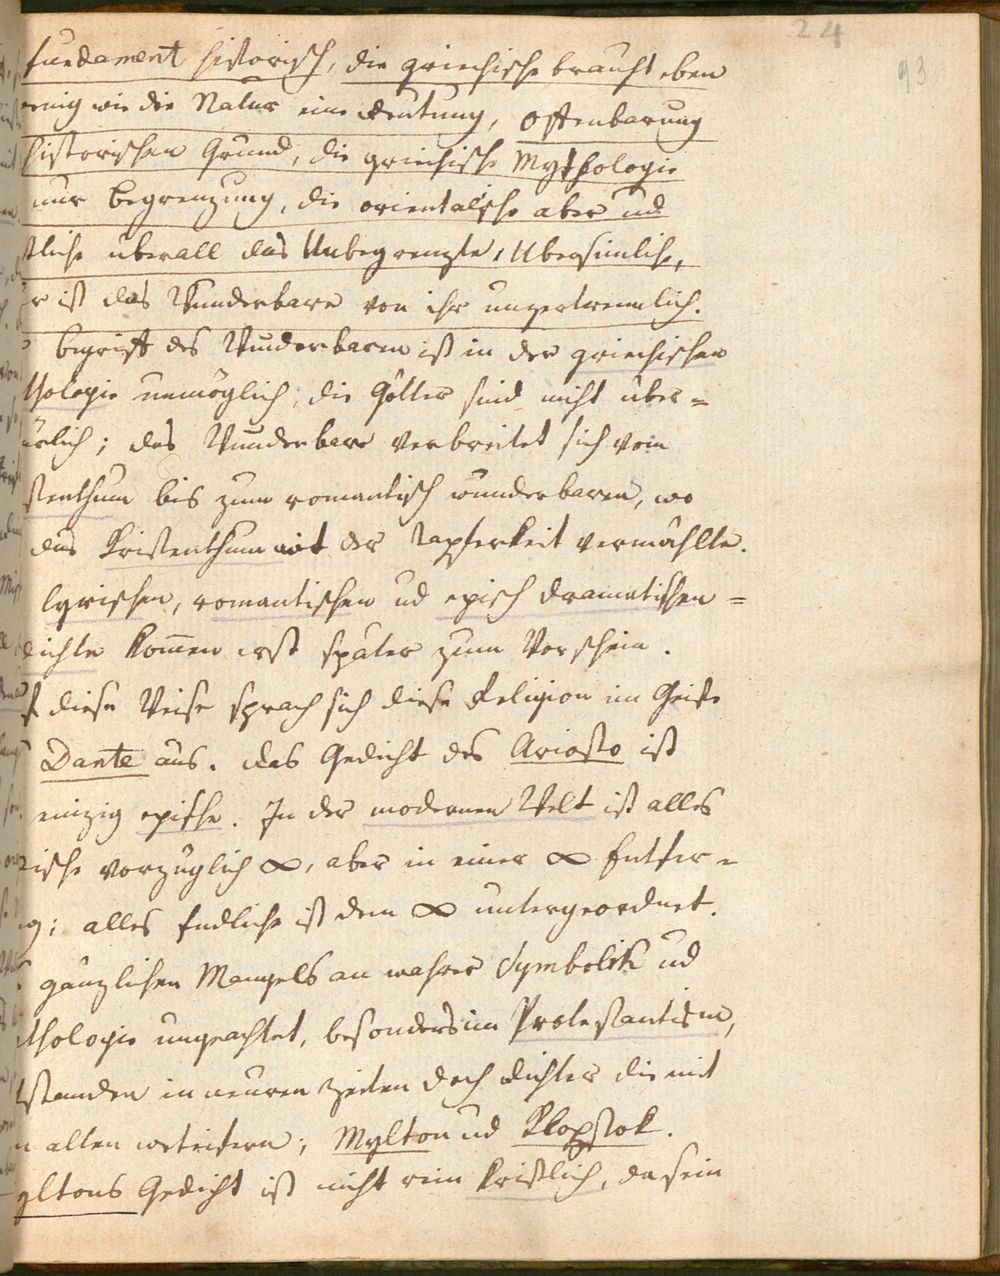 24
93
fundament historisch, die griechische braucht eben
wenig wie die Natur eine Deutung, Offenbarung
historischen Grund, die griechische Mythologie
nur Begrenzung, die orientalische aber ud
stliche überall das Unbegrenzte, Ubersinnliche,
ist das Wunderbare von ihr unzertrennlich.
begriff des Wunderbaren ist in der griechischen
thologie unmöglich, die Götter sind nicht über=
ürlich; das Wunderbare verbreitet sich vom
stenthum bis zum romantisch wunderbaren, wo
das Kristenthum mit der Tapferkeit vermählte.
lyrischen, romantischen ud episch dramatischen =
dichte kom̄en erst später zum Vorschein.
f diese Weise sprach sich diese Religion im Geiste
Dante aus. das Gedicht des Ariosto ist
einzig epische. In der modernen Welt ist alles
rische vorzüglich ∞, aber in einer ∞ Entfer=
ng; alles Endliche ist dem ∞ untergeordnet.
gänzlichen Mangels an wahrer Symbolik ud
thologie ungeachtet, besonders im Protestantism,
tstanden in neuren Zeiten doch Dichter die mit
n alten weteifern; Mylton ud Klopstok.
yltons Gedicht ist nicht rein Kristlich, da sein